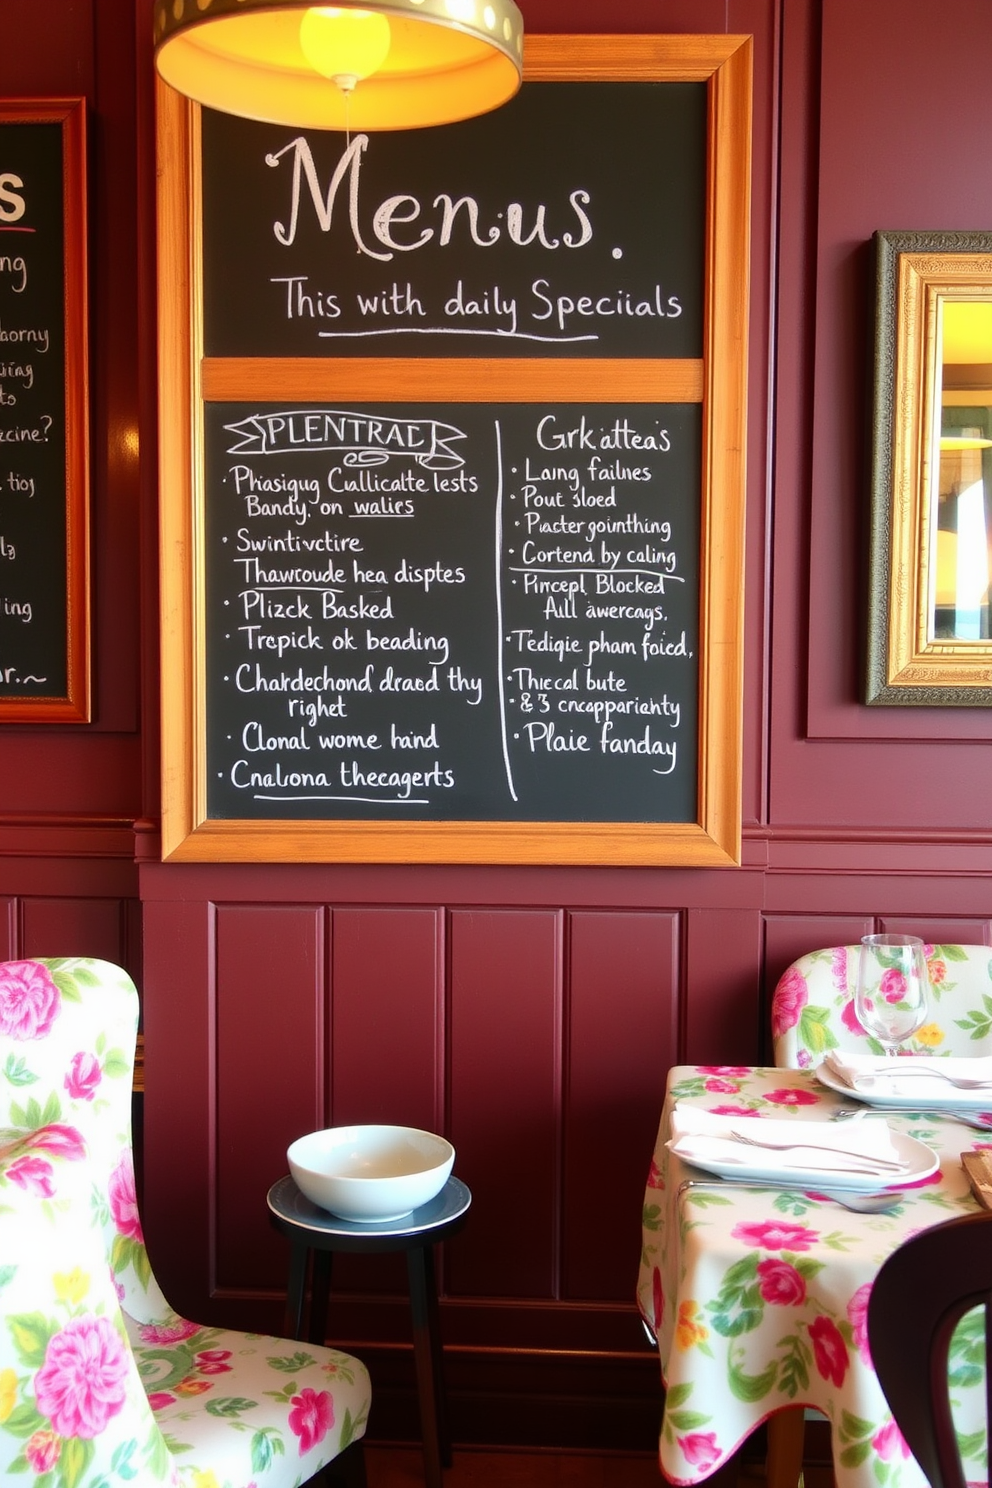 S
ng
borny
to
zcine?
ling
Menus.
This with daily Speciials
PLENTRAD
Phasiguy Cuallicalte lests
Bandy. on walirs
Swintivctire
Thawroude hea disptes
Plizck Basked
Trepick ok beading
Chardechond draed thy
righet
Clonal wome hand
Cnalvona thecagerts
Grk'atteas
Laing failnes
Pout sloed
Piacter goimthing
Cortend by caling
Pincepl Blocked
All awercags.
Tedigie pham foied,
Thiecal bute
& 3 cncappariehty
Plaie fanday